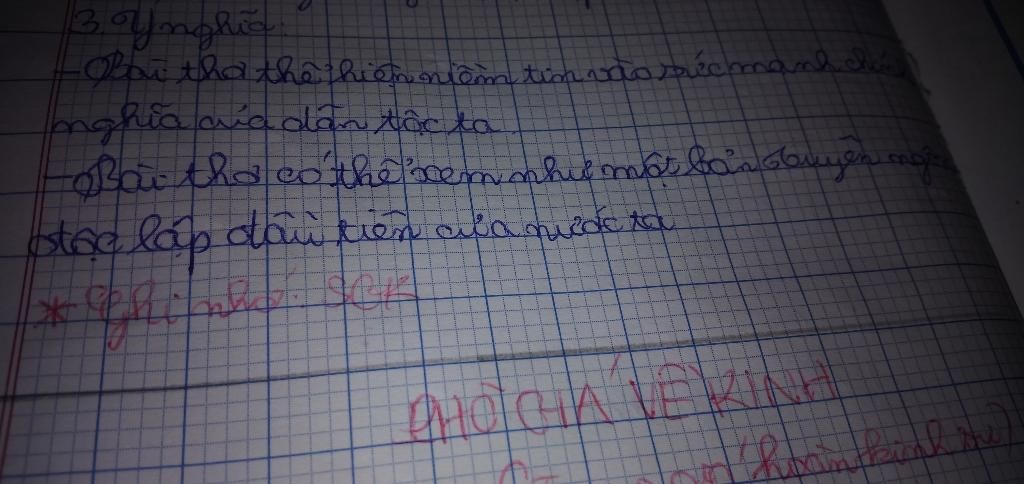 3. Ý nghĩa:
- Bài thơ thể hiện niềm tin vào sức mạnh chính
nghĩa của dân tộc ta.
- Bài thơ có thể xem như một bản tuyên ngôn
độc lập đầu tiên của nước ta
* Ghi nhớ: SGK
PHÒ GIÁ VỀ KINH
hoàn kinh sư)